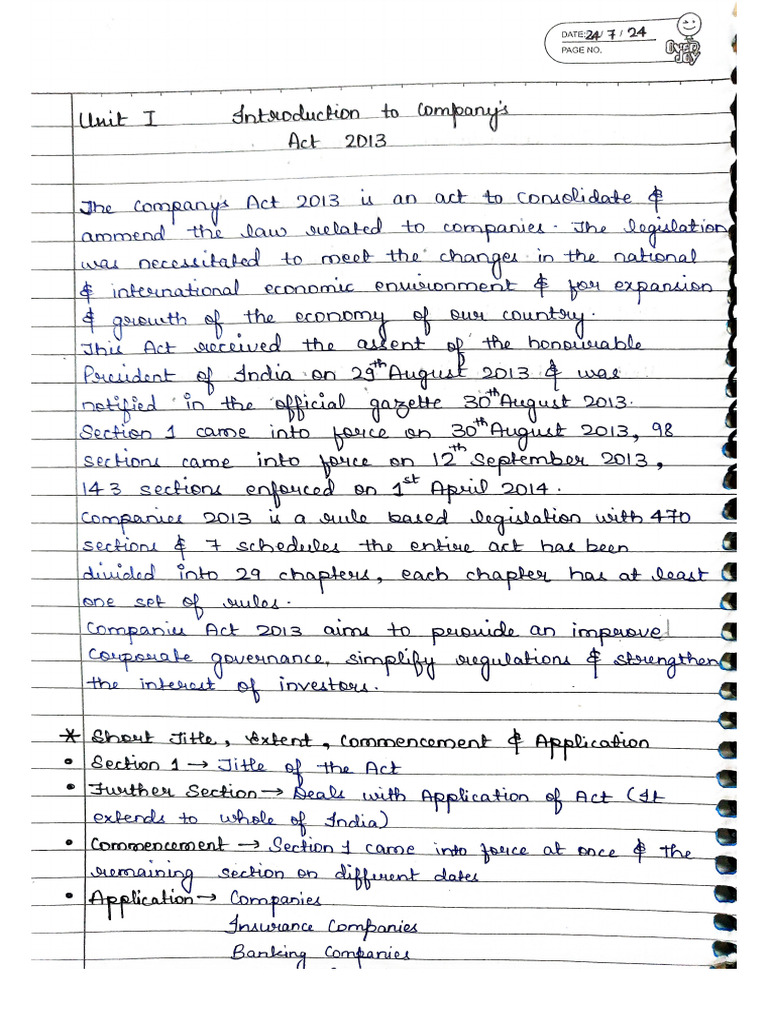 DATE: 24/7/24
PAGE NO.
OVER JOY
Unit I Introduction to Company's
Act 2013
The Company's Act 2013 is an act to consolidate &
ammend the law related to companies. The legislation
was necessitated to meet the changes in the national
& international economic environment & for expansion
& growth of the economy of our country.
This Act received the assent of the honourable
President of India on 29th August 2013 & was
notified in the official gazette 30th August 2013.
Section 1 came into force on 30th August 2013, 98
sections came into force on 12th September 2013,
143 sections enforced on 1st April 2014.
Companies 2013 is a rule based legislation with 470
sections & 7 schedules the entire act has been
divided into 29 chapters, each chapter has at least
one set of rules.
Companies Act 2013 aims to provide an improve
corporate governance, simplify regulations & strengthen
the interest of investors.
* Short Title, Extent, Commencement & Application
• Section 1 → Title of the Act
• Further Section → Deals with Application of Act (It
extends to whole of India)
• Commencement → Section 1 came into force at once & the
remaining section on different dates
• Application → Companies
Insurance Companies
Banking Companies